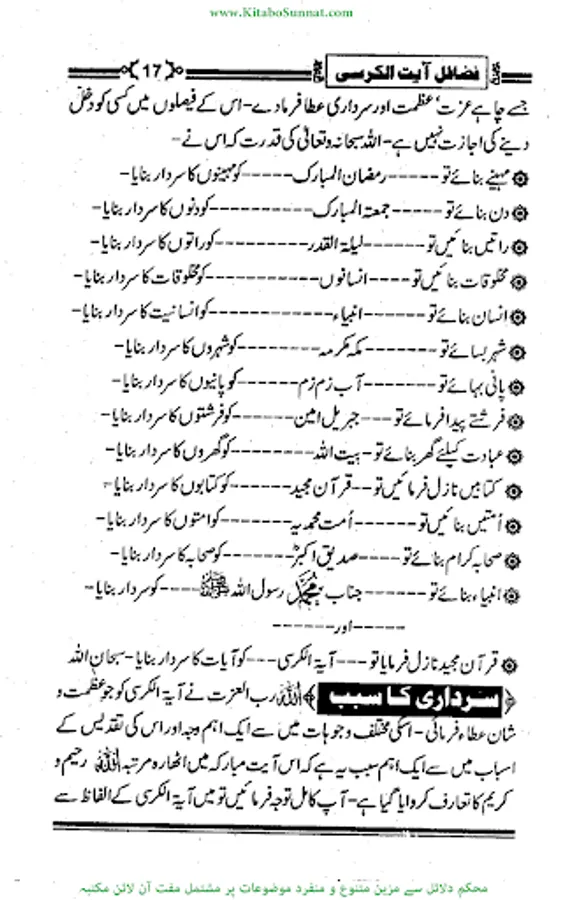 www.KitaboSunnat.com
فضائل آیت الکرسی 17
جسے چاہے عزت' عظمت اور سرداری عطا فرمادے-اس کے فیصلوں میں کسی کو دخل
دینے کی اجازت نہیں ہے-اللہ سبحانہ وتعالیٰ کی قدرت کہ اس نے-
۞ مہینے بنائے تو-----رمضان المبارک-----کو مہینوں کا سردار بنایا-
۞ دن بنائے تو------جمعۃ المبارک----------کو دنوں کا سردار بنایا-
۞ راتیں بنائیں تو------لیلۃ القدر----------کو راتوں کا سردار بنایا-
۞ مخلوقات بنائیں تو----انسانوں-----------کو مخلوقات کا سردار بنایا-
۞ انسان بنائے تو------انبیاء------------کو انسانیت کا سردار بنایا-
۞ شہر بسائے تو-------مکہ مکرمہ--------کو شہروں کا سردار بنایا-
۞ پانی بہائے تو-------آب زم زم------کو پانیوں کا سردار بنایا-
۞ فرشتے پیدا فرمائے تو---جبریل امین------کو فرشتوں کا سردار بنایا-
۞ عبادت کیلئے گھر بنائے تو-بیت اللہ--------کو گھروں کا سردار بنایا-
۞ کتابیں نازل فرمائیں تو--قرآن مجید-------کو کتابوں کا سردار بنایا-
۞ اُمتیں بنائیں تو------اُمت محمدیہ-------کو امتوں کا سردار بنایا-
۞ صحابہ کرام بنائے تو----صدیق اکبرؓ-------کو صحابہ کا سردار بنایا-
۞ انبیاء بنائے تو------جناب محمد رسول اللہ ﷺ----کو سردار بنایا-
-----اور------
۞ قرآن مجید نازل فرمایا تو---آیۃ الکرسی---کو آیات کا سردار بنایا-سبحان اللہ
﴿سرداری کا سبب﴾ اللہ رب العزت نے آیۃ الکرسی کو جو عظمت و
شان عطاء فرمائی-اسکی مختلف وجوہات میں سے ایک اہم وجہ اور اس کی تقدیس کے
اسباب میں سے ایک اہم سبب یہ ہے کہ اس آیت مبارکہ میں اٹھارہ مرتبہ اللہ رحیم و
کریم کا تعارف کروایا گیا ہے-آپ کامل توجہ فرمائیں تو میں آیۃ الکرسی کے الفاظ سے
محکم دلائل سے مزین متنوع و منفرد موضوعات پر مشتمل مفت آن لائن مکتبہ